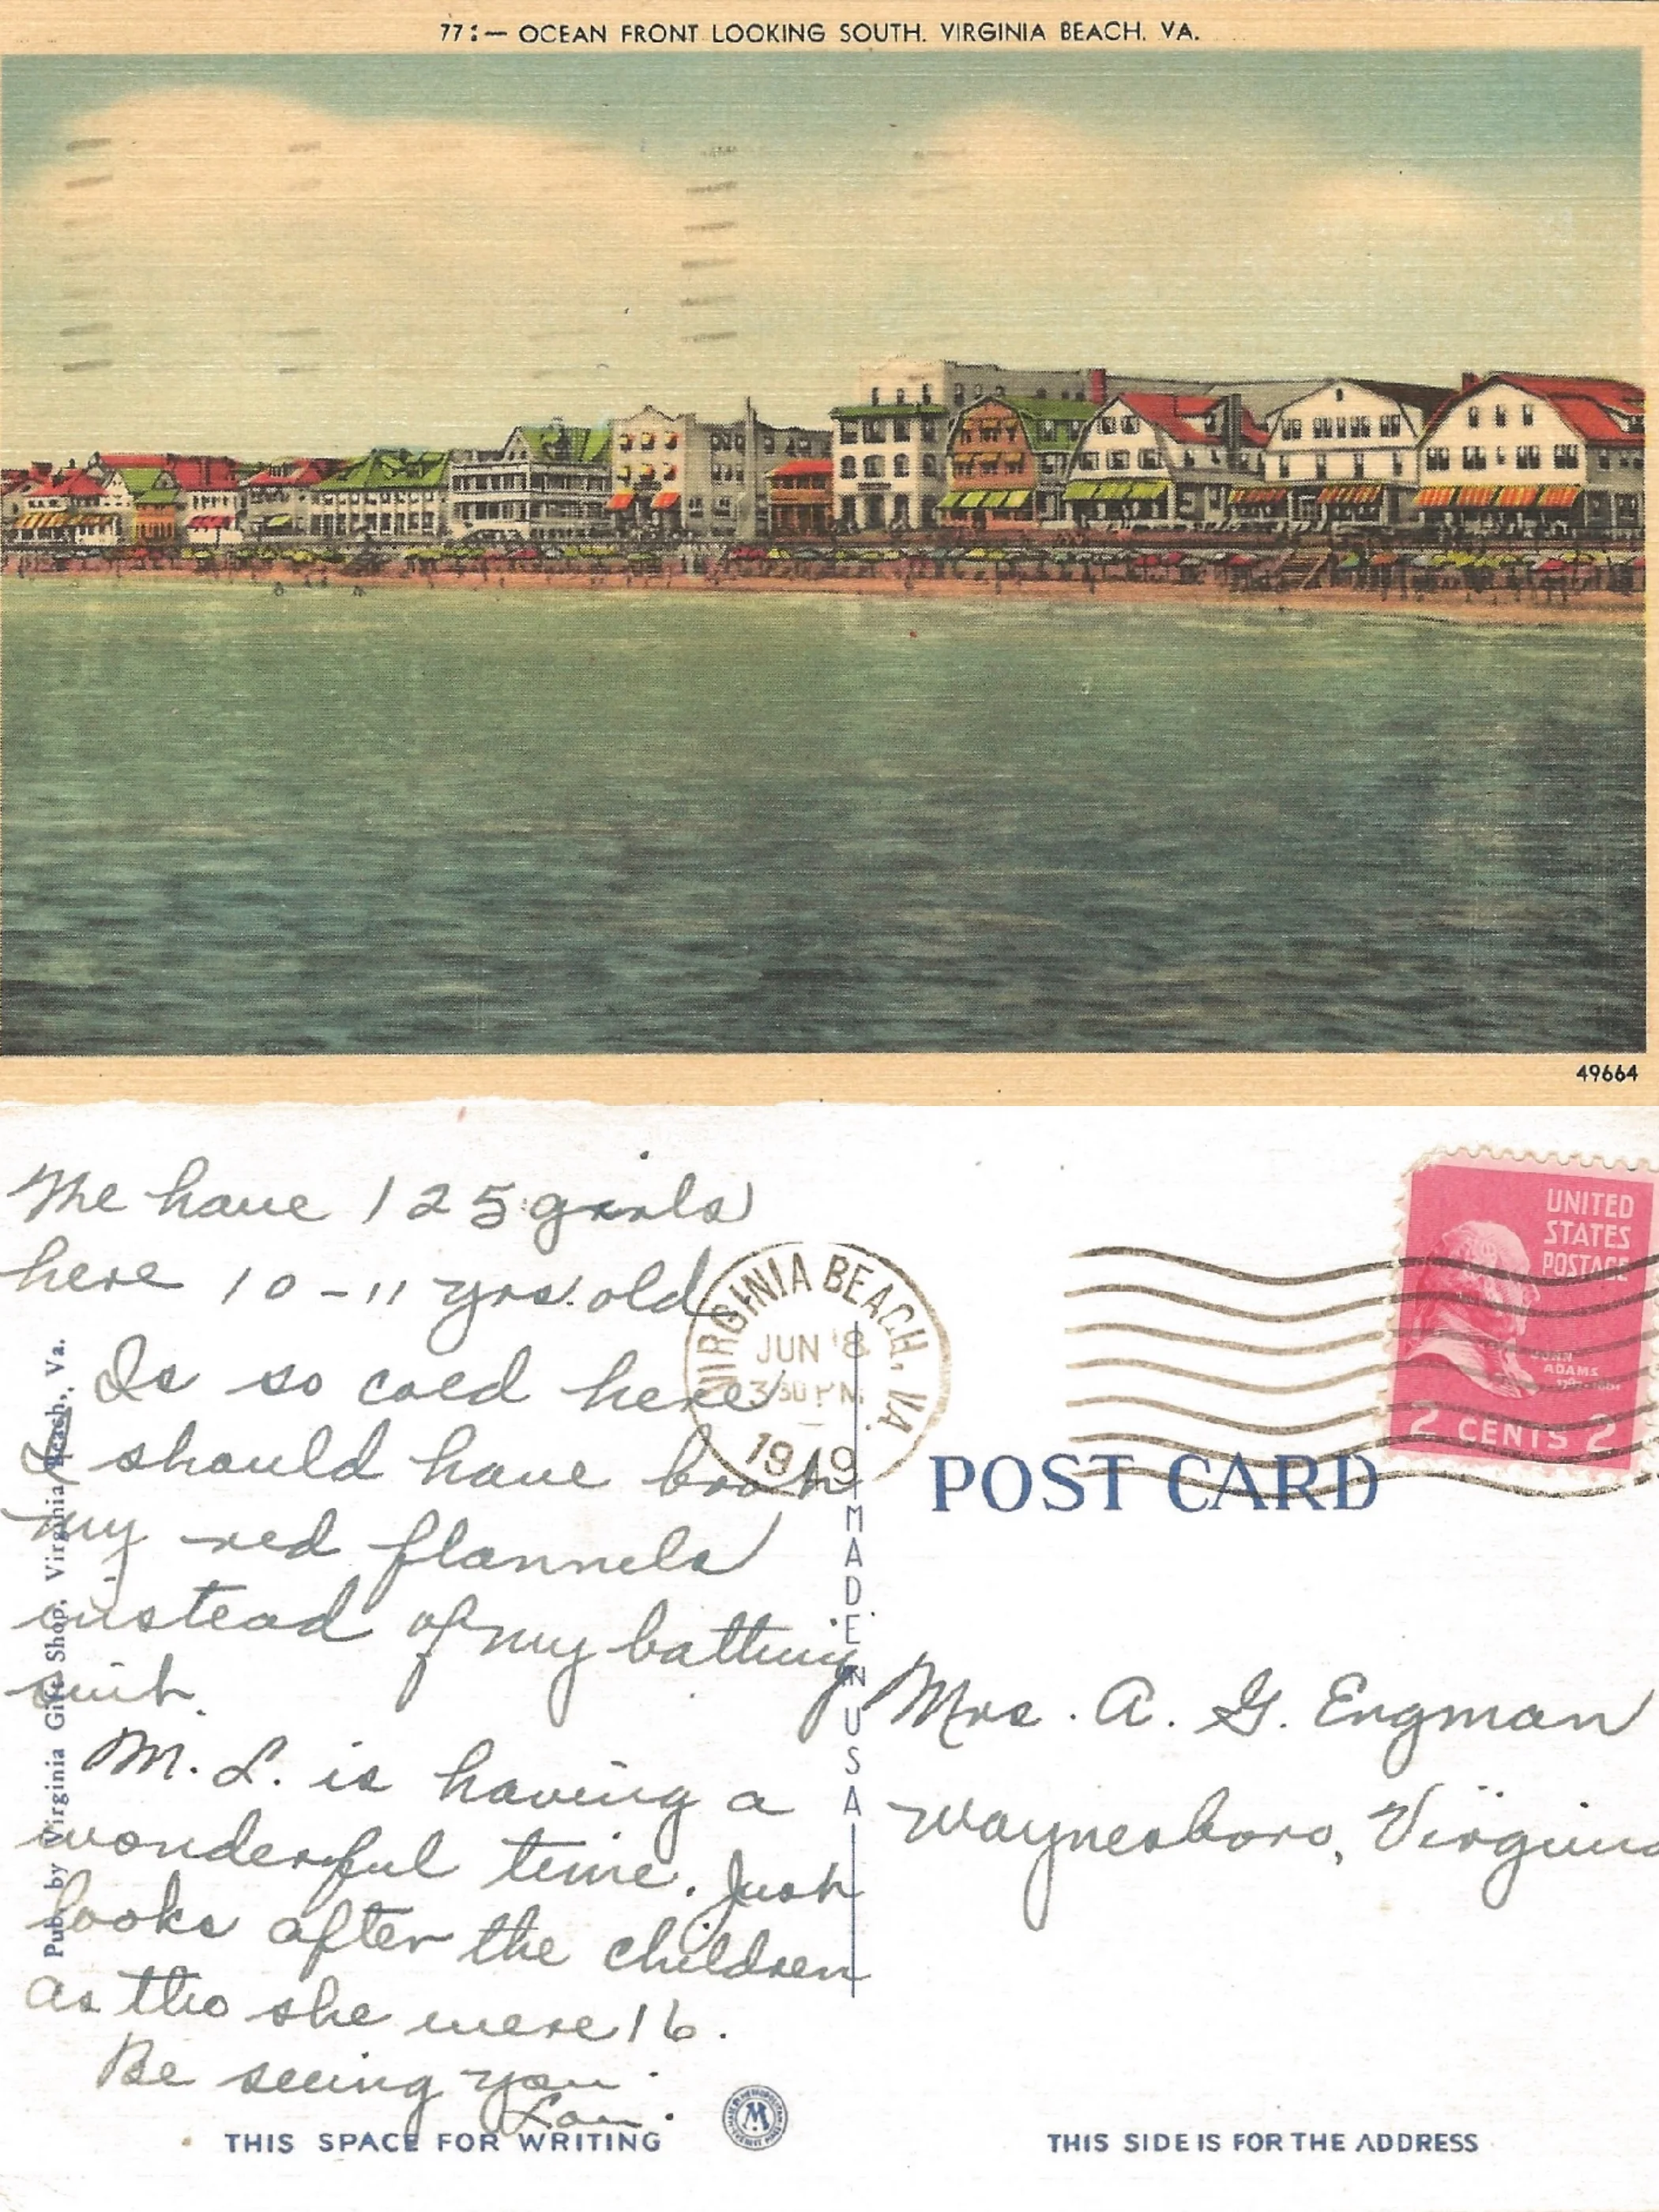 77:— OCEAN FRONT LOOKING SOUTH. VIRGINIA BEACH. VA.
49664
We have 125 girls
here 10-11 yrs. old
Is so cold here
I should have
my red flannels
instead of my bathing
suit.
M. L. is having a
wonderful time. Just
looks after the children
as tho she were 16.
Be seeing you.
Lou.
THIS SPACE FOR WRITING
Pub. by Virginia Gift Shop, Virginia Beach, Va.
MADE IN USA
VIRGINIA BEACH, VA.
JUN 8
3 30 PM
1949
UNITED
STATES
POSTAGE
JOHN
ADAMS
2 CENTS 2
POST CARD
Mrs. A. G. Engman
Waynesboro, Virginia
THIS SIDE IS FOR THE ADDRESS